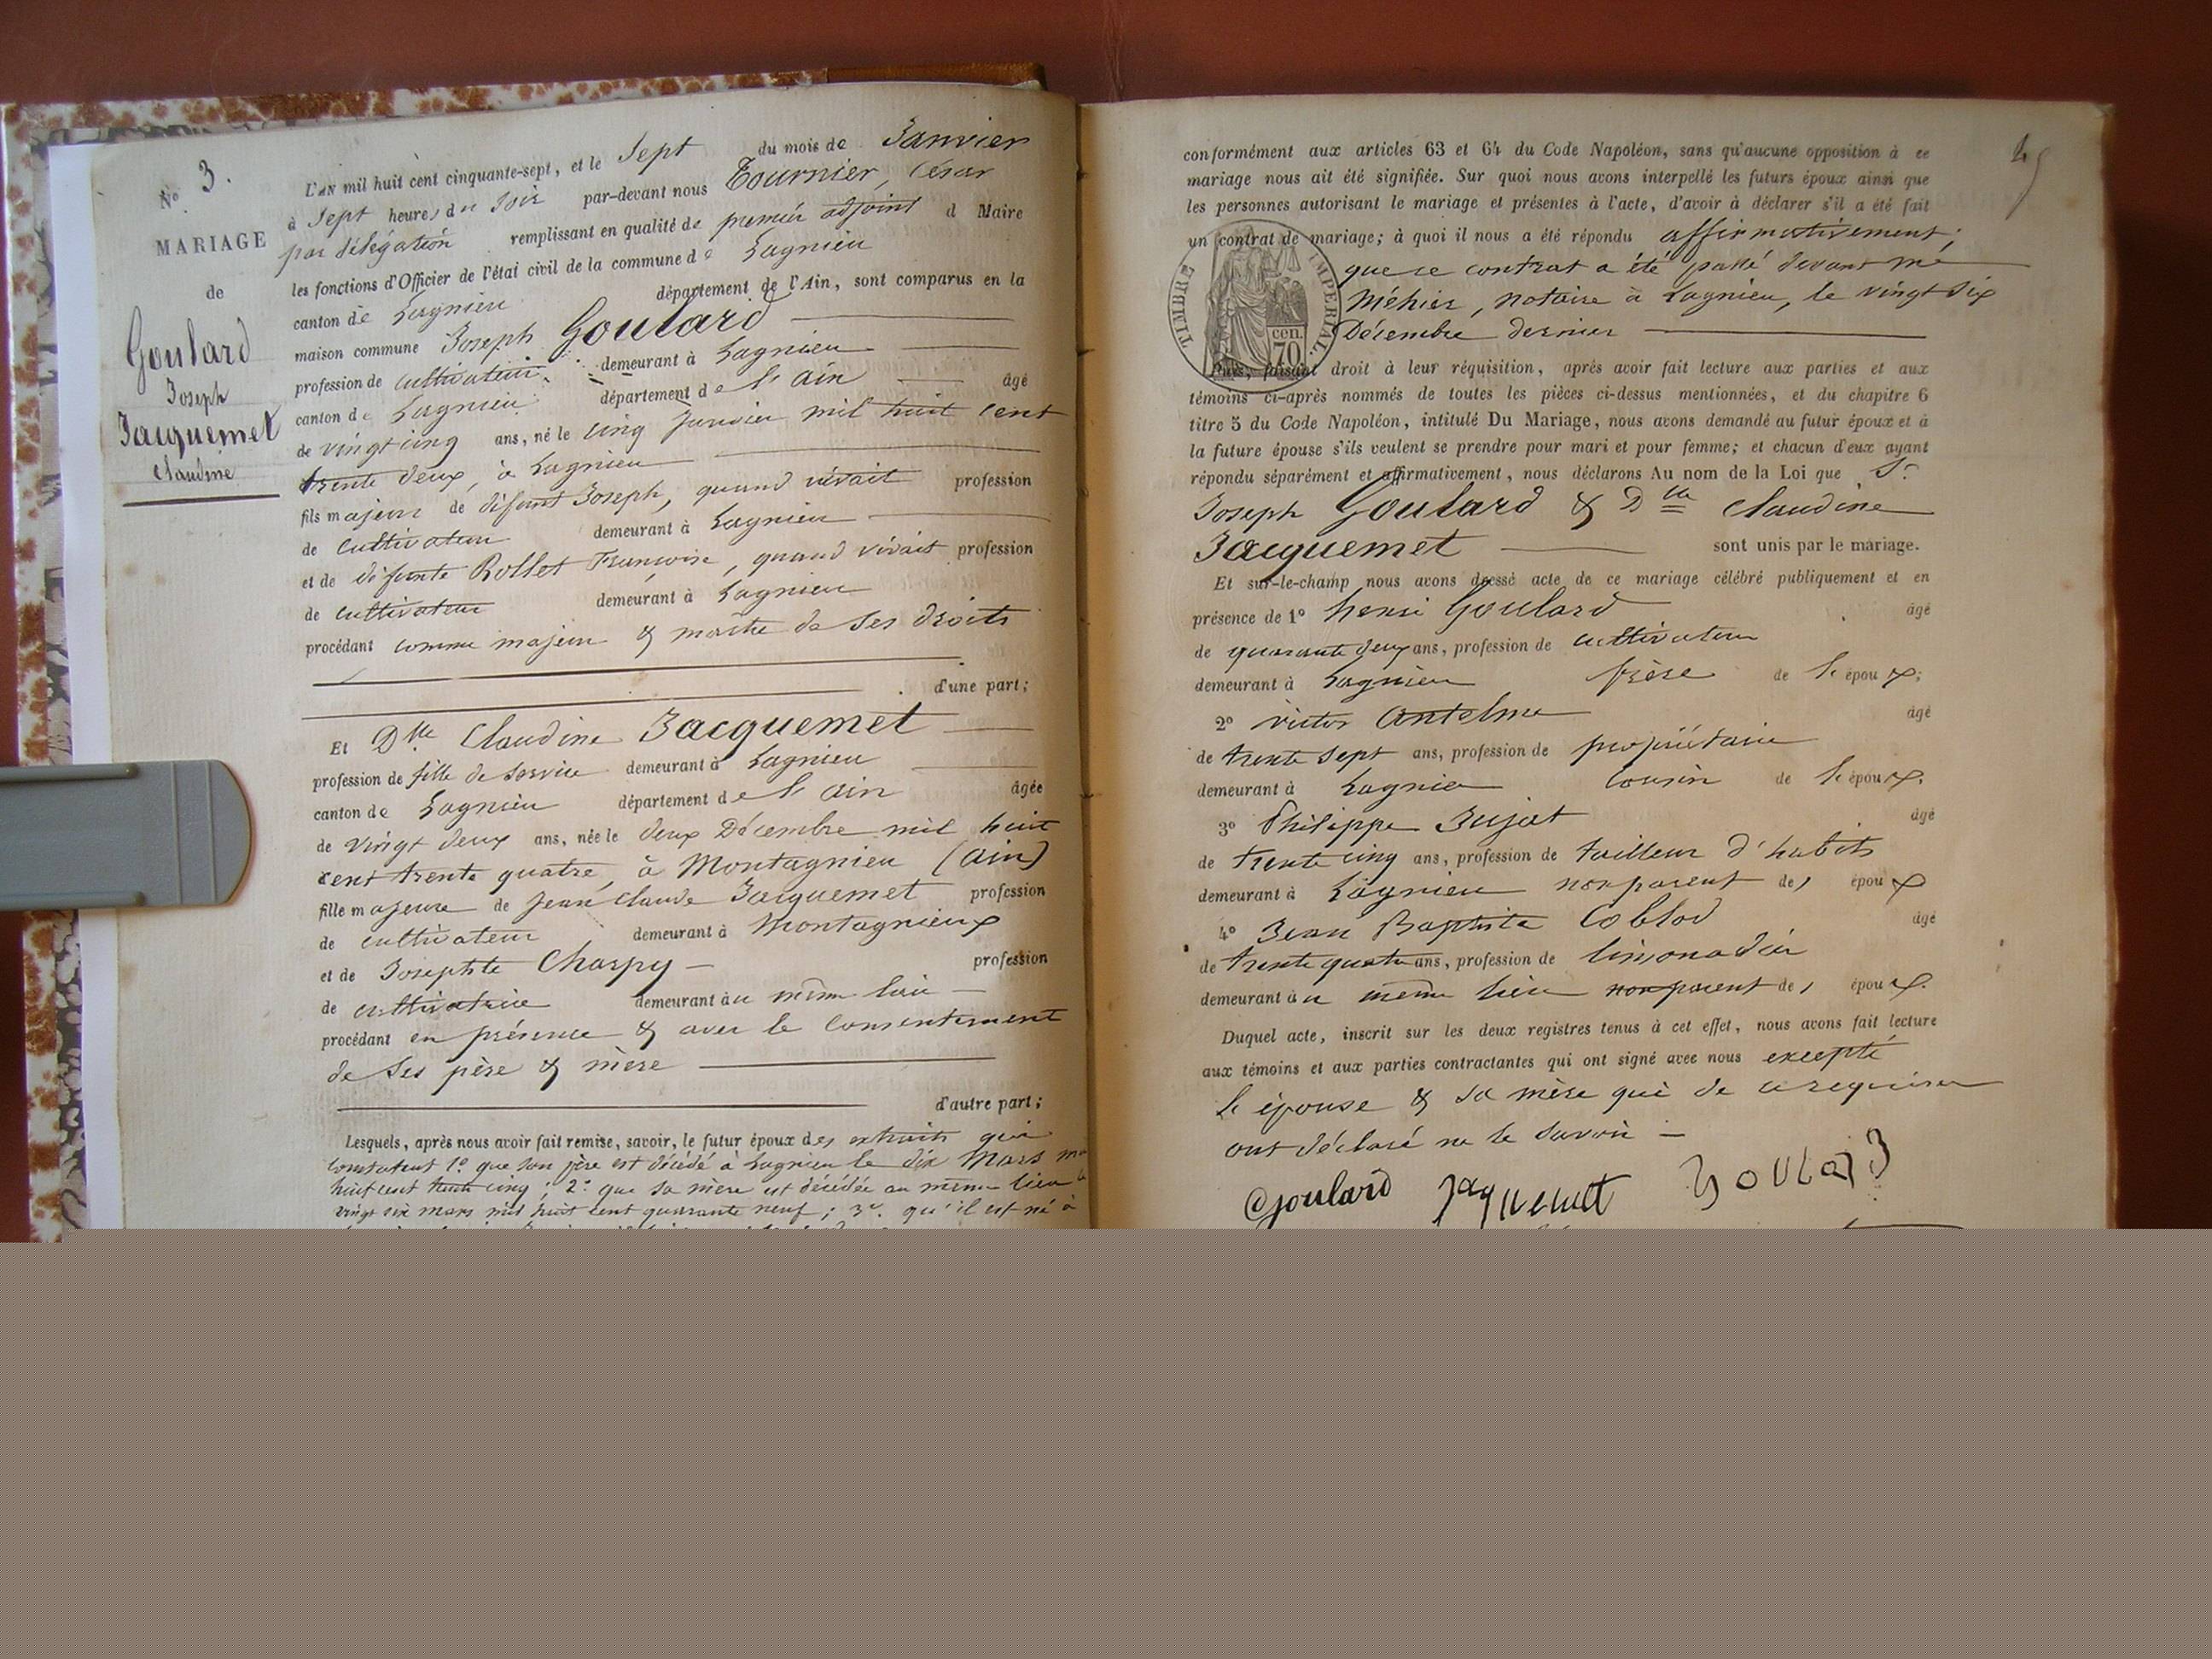 No 3.
MARIAGE
de
Goulard
Joseph
Jacquemet
Claudine
L'AN mil huit cent cinquante-sept, et le Sept du mois de Janvier
à Sept heures du Soir par-devant nous Tournier, César
par délégation remplissant en qualité de premier adjoint d Maire
les fonctions d'Officier de l'état civil de la commune de Lagnieu
canton de Lagnieu département de l'Ain, sont comparus en la
maison commune Joseph Goulard
profession de cultivateur demeurant à Lagnieu
canton de Lagnieu département de l'ain âgé
de vingt cinq ans, né le cinq Janvier mil huit cent
trente deux, à Lagnieu
fils majeur de défunt Joseph, quand vivait profession
de cultivateur demeurant à Lagnieu
et de défunte Rollet Françoise, quand vivait profession
de cultivateur demeurant à Lagnieu
procédant comme majeur & maître de ses droits
d'une part;
Et Dlle Claudine Jacquemet
profession de fille de service demeurant à Lagnieu
canton de Lagnieu département de l'ain âgée
de vingt deux ans, née le deux Décembre mil huit
cent trente quatre, à Montagnieu (ain)
fille majeure de Jean Claude Jacquemet profession
de cultivateur demeurant à Montagnieux
et de Josephte Charpy profession
de cultivatrice demeurant au même lieu
procédant en présence & avec le consentement
de ses père & mère
d'autre part;
Lesquels, après nous avoir fait remise, savoir, le futur époux des extraits qui
constatent 1º que son père est décédé à Lagnieu le dix Mars mil
huit cent trente cinq; 2º que sa mère est décédée au même lieu le
vingt six mars mil huit cent quarante neuf; 3º qu'il est né à
conformément aux articles 63 et 64 du Code Napoléon, sans qu'aucune opposition à ce
mariage nous ait été signifiée. Sur quoi nous avons interpellé les futurs époux ainsi que
les personnes autorisant le mariage et présentes à l'acte, d'avoir à déclarer s'il a été fait
un contrat de mariage; à quoi il nous a été répondu affirmativement;
que ce contrat a été passé devant me
Méhier, notaire à Lagnieu, le vingt six
Décembre dernier
TIMBRE IMPERIAL.
cen.
70
Puis, faisant droit à leur réquisition, après avoir fait lecture aux parties et aux
témoins ci-après nommés de toutes les pièces ci-dessus mentionnées, et du chapitre 6
titre 5 du Code Napoléon, intitulé Du Mariage, nous avons demandé au futur époux et à
la future épouse s'ils veulent se prendre pour mari et pour femme; et chacun d'eux ayant
répondu séparément et affirmativement, nous déclarons Au nom de la Loi que Sr
Joseph Goulard & Dlle Claudine
Jacquemet sont unis par le mariage.
Et sur-le-champ nous avons dressé acte de ce mariage célébré publiquement et en
présence de 1º henri Goulard âgé
de quarante deux ans, profession de cultivateur
demeurant à Lagnieu frère de l'époux;
2º victor Antelme âgé
de trente sept ans, profession de propriétaire
demeurant à Lagnieu cousin de l'époux.
3º Philippe Bujat âgé
de trente cinq ans, profession de tailleur d'habits
demeurant à Lagnieu non parent des époux
4º Jean Baptiste Coblod âgé
de trente quatre ans, profession de limonadier
demeurant au même lieu non parent des époux.
Duquel acte, inscrit sur les deux registres tenus à cet effet, nous avons fait lecture
aux témoins et aux parties contractantes qui ont signé avec nous excepté
l'épouse & sa mère qui de ce requises
ont déclaré ne le savoir
Goulard Jacquemet Goulard